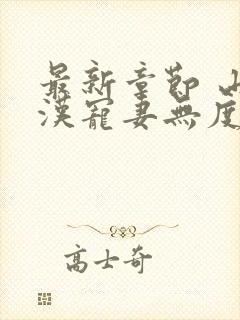 最新章節 山
漢寵妻無度
高士奇